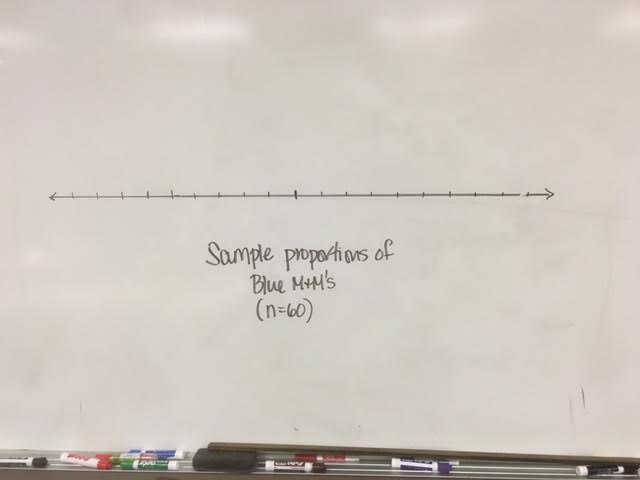 Sample proportions of
Blue M+M's
(n=60)